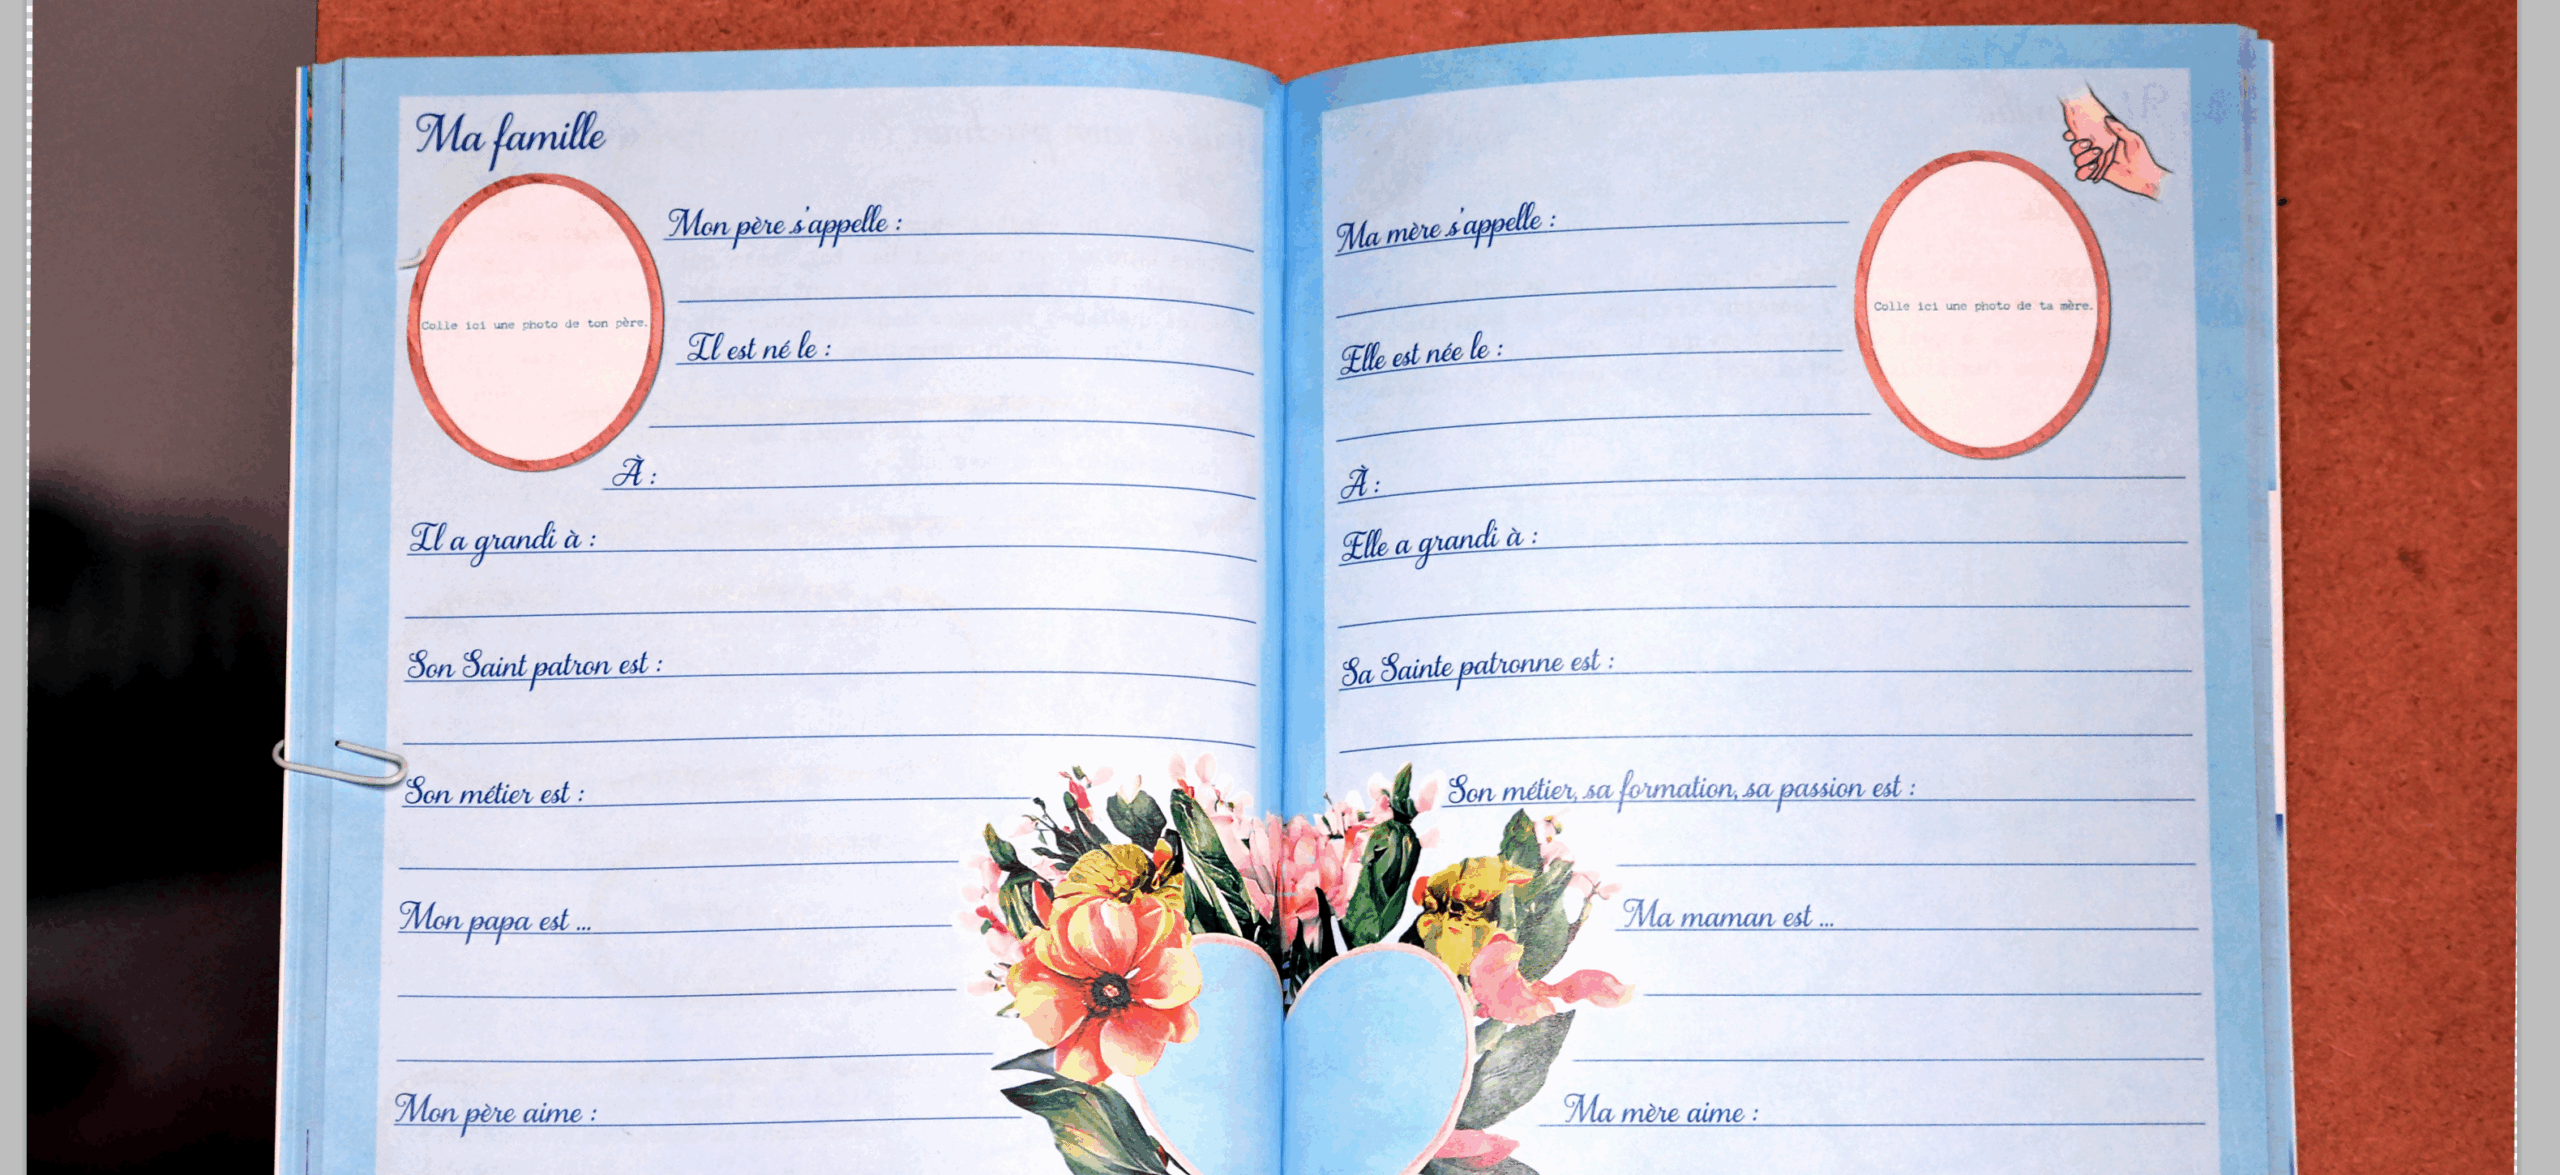 Ma famille
Mon père s'appelle :
Colle ici une photo de ton père.
Il est né le :
À :
Il a grandi à :
Son Saint patron est :
Son métier est :
Mon papa est ...
Mon père aime :
Ma mère s'appelle :
Colle ici une photo de ta mère.
Elle est née le :
À :
Elle a grandi à :
Sa Sainte patronne est :
Son métier, sa formation, sa passion est :
Ma maman est ...
Ma mère aime :